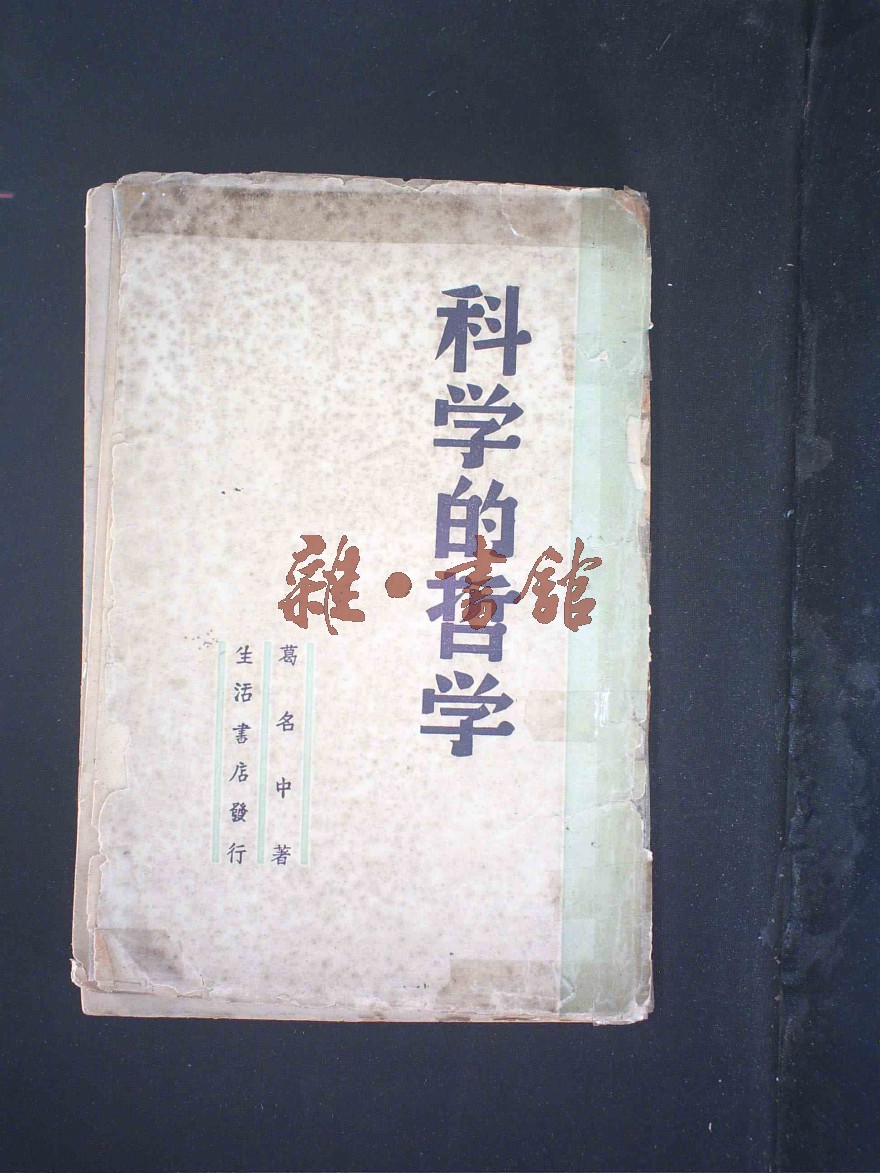 科学的哲学
葛名中著
生活書店發行
雜·書舘